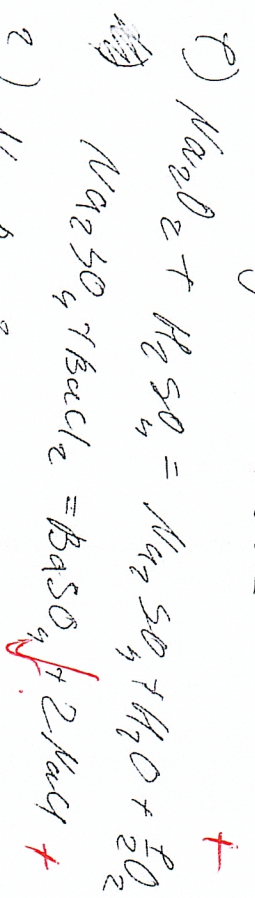 1) Na₂O₂ + H₂SO₄ = Na₂SO₄ + H₂O + ½O₂ +
Na₂SO₄ + BaCl₂ = BaSO₄↓ + 2NaCl +
2)